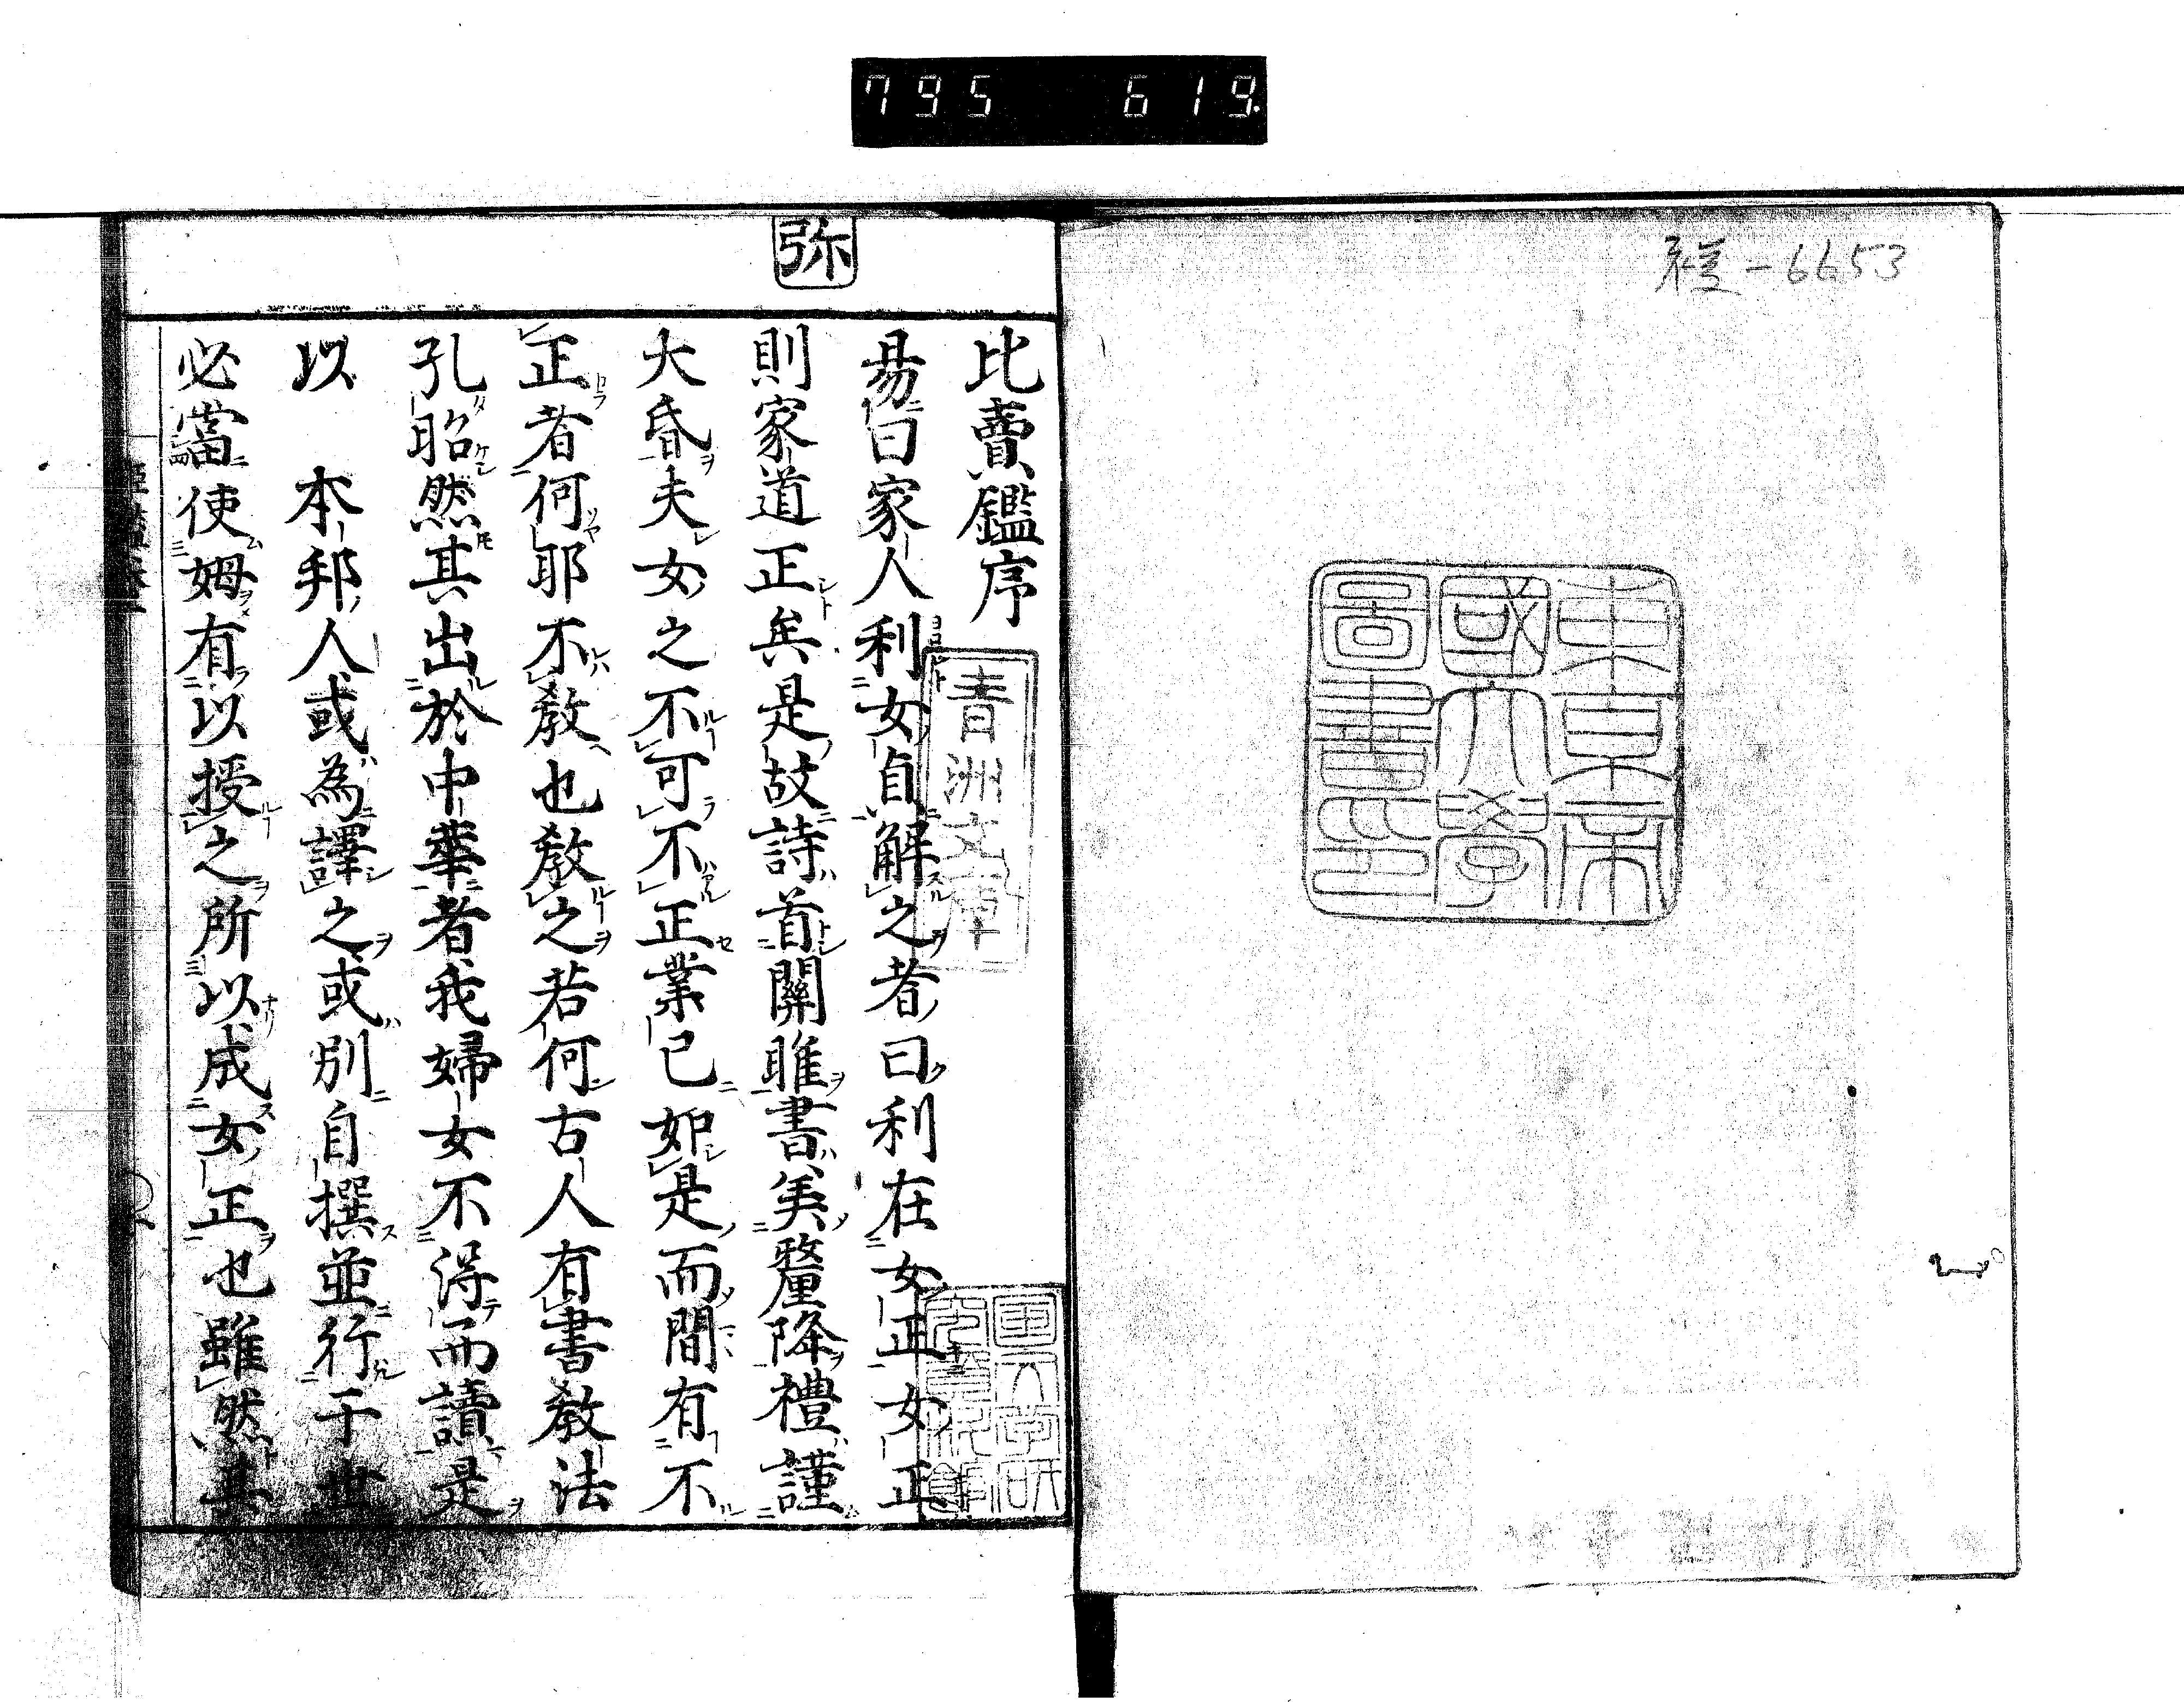 795 619
霞-6653
東京帝
國大學
圖書印
弥
比賣鑑序
青洲文庫
易曰家人利女貞解之者曰利在女正女正
則家道正矣是故詩首關雎書美釐降禮謹
大昏夫女之不可不正業已如是而間有不
正者何耶不教也教之若何古人有書教法
孔昭然其出於中華者我婦女不得而讀是
以 本邦人或為譯之或別自撰並行于世
必當使姆有以授之所以成女正也雖然其